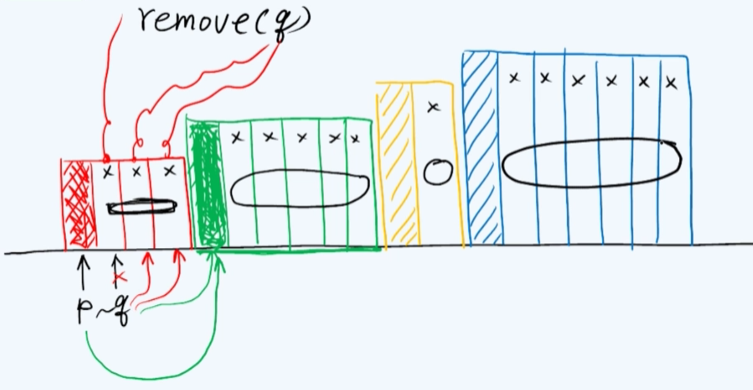 remove(q)
x x x
x x x x x
x
x x x x x x
p~q